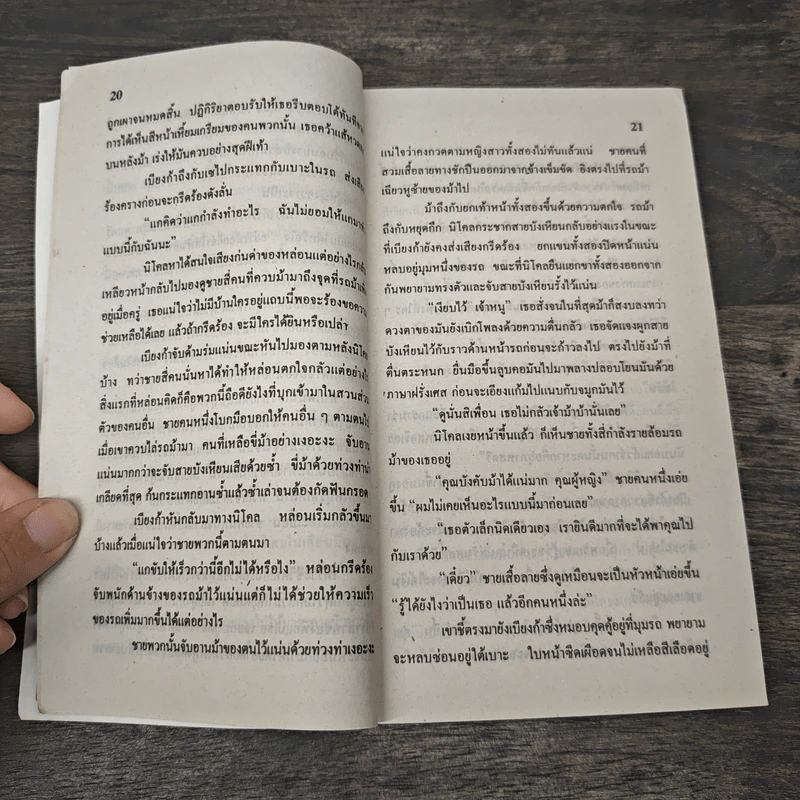 20
ถูกเผาจนหมดสิ้น ปฏิกิริยาตอบรับให้เธอรีบตอบได้ทันที
การได้เห็นสีหน้าเหี้ยมเกรียมของคนพวกนั้น เธอคว้าแส้หวด
บนหลังม้า เร่งให้มันควบอย่างสุดฝีเท้า
เบียงก้าถึงกับเซไปกระแทกกับเบาะในรถ ส่งเสียง
ร้องครางก่อนจะกรีดร้องดังลั่น
“แกคิดว่าแกกำลังทำอะไร ฉันไม่ยอมให้แกมา
แบบนี้กับฉันนะ”
นิโคลหาได้สนใจเสียงก่นด่าของหล่อนแต่อย่างไร
เหลียวหน้ากลับไปมองดูชายสี่คนที่ควบม้ามาถึงจุดที่รถม้า
อยู่เมื่อครู่ เธอแน่ใจว่าไม่มีบ้านใครอยู่แถบนี้พอจะร้องขอความ
ช่วยเหลือได้เลย แล้วถ้ากรีดร้อง จะมีใครได้ยินหรือเปล่า
เบียงก้าจับด้ามร่มแน่นขณะหันไปมองตามหลังนิโคล
บ้าง ทว่าชายสี่คนนั่นหาได้ทำให้หล่อนตกใจกลัวแต่อย่าง
สิ่งแรกที่หล่อนคิดก็คือพวกนี้ถือดียังไงที่บุกเข้ามาในสวนส่วน
ตัวของคนอื่น ชายคนหนึ่งโบกมือบอกให้คนอื่น ๆ ตามตนไป
เมื่อเขาควบไล่รถม้ามา คนที่เหลือขี่ม้าอย่างเงอะงะ จับอาน
แน่นมากกว่าจะจับสายบังเหียนเสียด้วยซ้ำ ขี่ม้าด้วยท่วงท่าน่า
เกลียดที่สุด ก้นกระแทกอานซ้ำแล้วซ้ำเล่าจนต้องกัดฟันกรอด
เบียงก้าหันกลับมาทางนิโคล หล่อนเริ่มกลัวขึ้นมา
บ้างแล้วเมื่อแน่ใจว่าชายพวกนี้ตามตนมา
“แกขับให้เร็วกว่านี้อีกไม่ได้หรือไง” หล่อนกรีดร้อง
จับพนักด้านข้างของรถม้าไว้แน่นแต่ก็ไม่ได้ช่วยให้ความเร็ว
ของรถเพิ่มมากขึ้นได้แต่อย่างไร
ชายพวกนั้นจับอานม้าของตนไว้แน่นด้วยท่วงท่าเงอะงะ
21
แน่ใจว่าคงกวดตามหญิงสาวทั้งสองไม่ทันแล้วแน่ ชายคนที่
สวมเสื้อลายทางชักปืนออกมาจากข้างเข็มขัด ยิงตรงไปที่รถม้า
เฉียวหูซ้ายของม้าไป
ม้าถึงกับยกเท้าหน้าทั้งสองขึ้นด้วยความตกใจ รถม้า
ถึงกับหยุดกึก นิโคลกระชากสายบังเหียนกลับอย่างแรงในขณะ
ที่เบียงก้ายังคงส่งเสียงกรีดร้อง ยกแขนทั้งสองปิดหน้าแน่น
หลบอยู่มุมหนึ่งของรถ ขณะที่นิโคลยืนแยกขาทั้งสองออกจาก
กันพยายามทรงตัวและจับสายบังเหียนรั้งไว้แน่น
“เงียบไว้ เจ้าหนู” เธอสั่งจนในที่สุดม้าก็สงบลงทว่า
ดวงตาของมันยังเบิกโพลงด้วยความตื่นกลัว เธอจัดแจงผูกสาย
บังเหียนไว้กับราวด้านหน้ารถก่อนจะก้าวลงไป ตรงไปยังม้าที่
ตื่นตระหนก ยื่นมือขึ้นลูบคอมันไปมาพลางปลอบโยนมันด้วย
ภาษาฝรั่งเศส ก่อนจะเอียงแก้มไปแนบกับจมูกมันไว้
“ดูนั่นสิเพื่อน เธอไม่กลัวเจ้าม้าบ้านั่นเลย”
นิโคลเงยหน้าขึ้นแล้ว ก็เห็นชายทั้งสี่กำลังรายล้อมรถ
ม้าของเธออยู่
“คุณบังคับม้าได้แน่มาก คุณผู้หญิง” ชายคนหนึ่งเอ่ย
ขึ้น “ผมไม่เคยเห็นอะไรแบบนี้มาก่อนเลย”
“เธอตัวเล็กนิดเดียวเอง เรายินดีมากที่จะได้พาคุณไป
กับเราด้วย”
“เดี๋ยว” ชายเสื้อลายซึ่งดูเหมือนจะเป็นหัวหน้าเอ่ยขึ้น
“รู้ได้ยังไงว่าเป็นเธอ แล้วอีกคนหนึ่งล่ะ”
เขาชี้ตรงมายังเบียงก้าซึ่งหมอบคุดคู้อยู่ที่มุมรถ พยายาม
จะหลบซ่อนอยู่ใต้เบาะ ใบหน้าซีดเผือดจนไม่เหลือสีเลือดอยู่